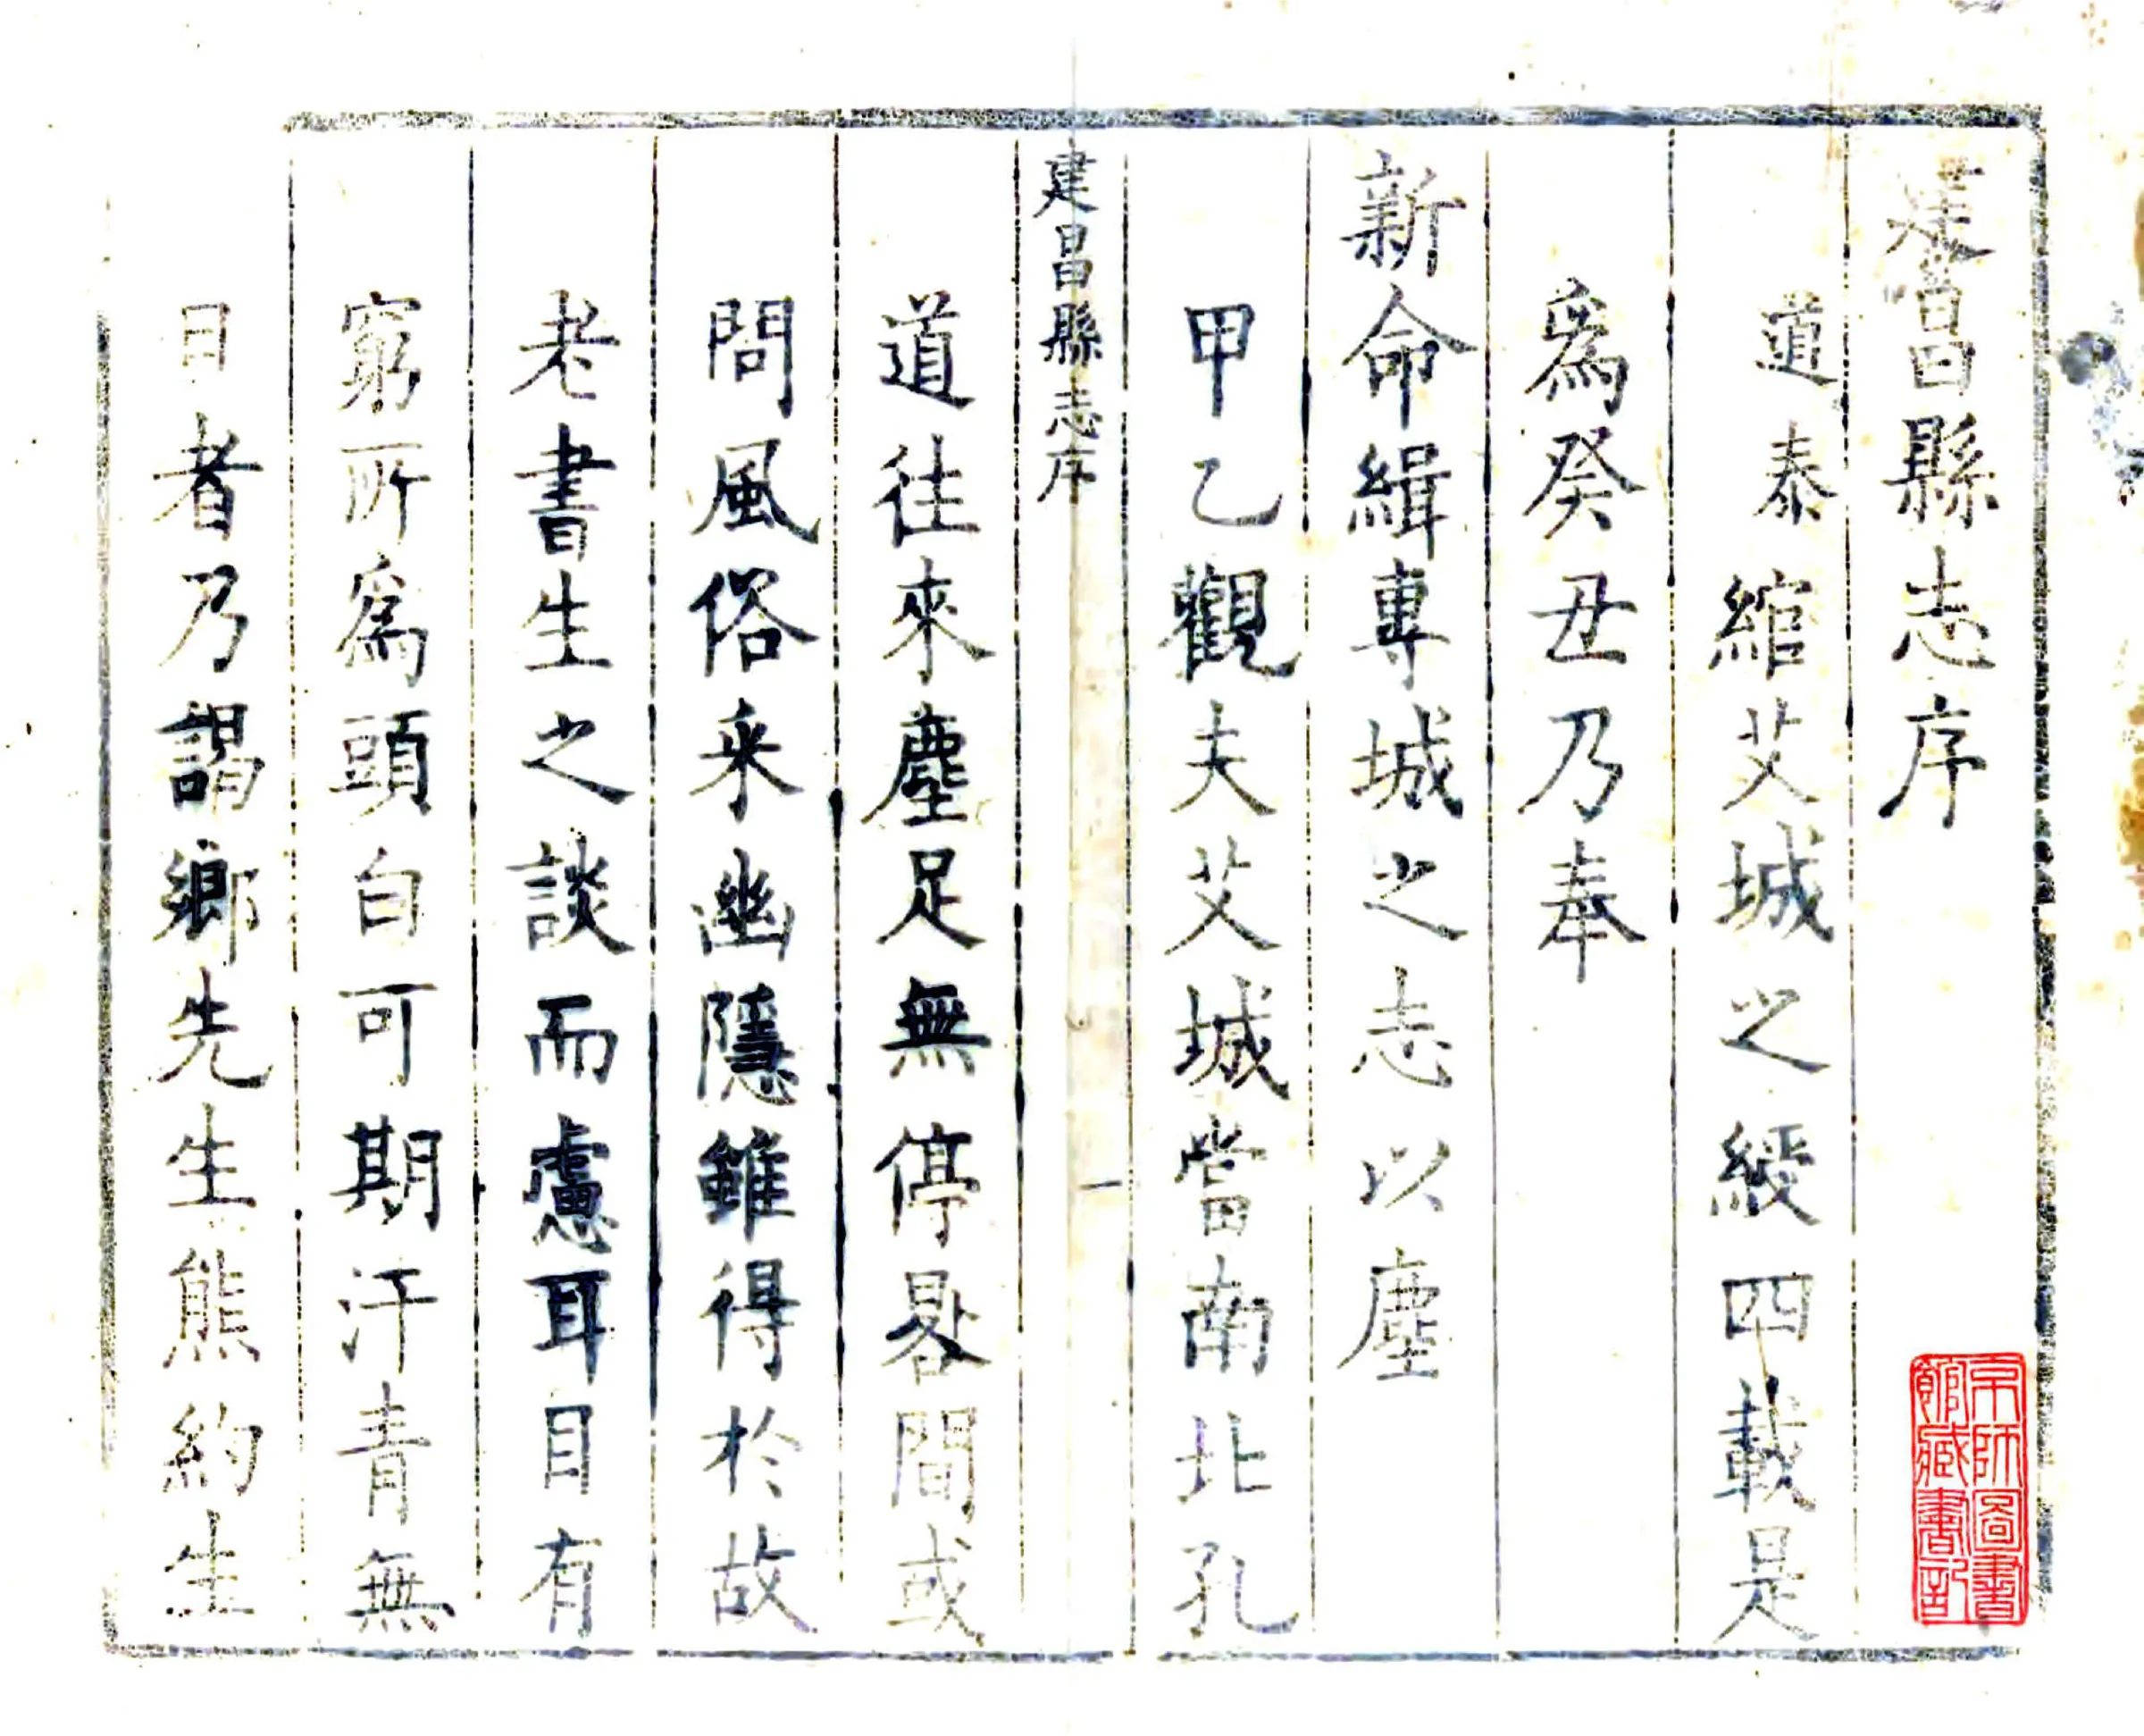 建昌縣志序
道泰綰艾城之綬四載是
爲癸丑乃奉
新命緝專城之志以塵
甲乙觀夫艾城當南北孔
建昌縣志序
一
道往來塵足無停晷間或
問風俗采幽隱雖得於故
老書生之談而慮耳目有
窮所爲頭白可期汗青無
日者乃謁鄉先生熊約生
京師圖書
館藏書記